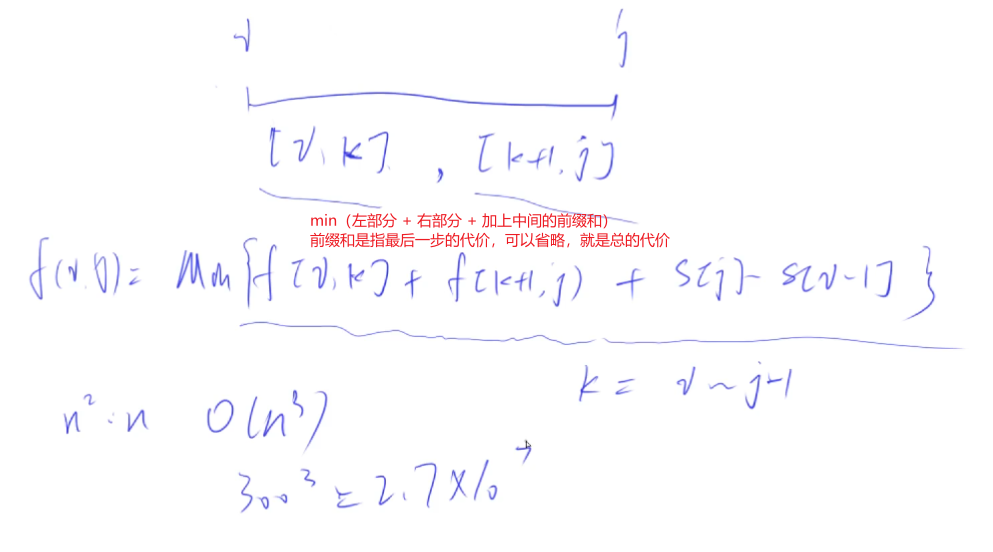 i j
[i, k] , [k+1, j]
min（左部分 + 右部分 + 加上中间的前缀和）
前缀和是指最后一步的代价，可以省略，就是总的代价
f(i,j) = Min{f[i,k] + f[k+1,j) + S[j]-S[i-1]}
k = i ~ j-1
n²·n O(n³)
300³ = 2.7×10⁷